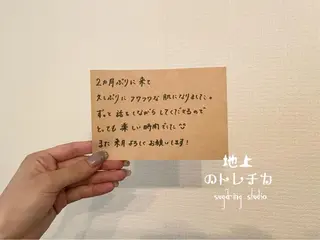 2ヵ月ぶりに来て
久しぶりにフワフワな肌になりました。
ずっと話をしながらしてくださるので
とっても楽しい時間でした
また来月よろしくお願いします!
地上
のトレチカ
sugaring studio